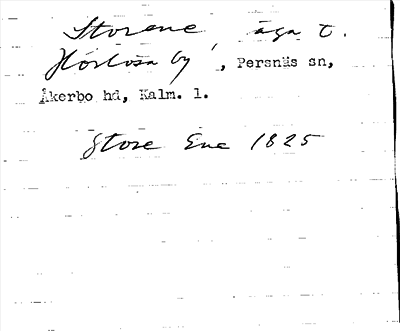 Storene, äga t.
Hörlösa by, Persnäs sn,
Åkerbo hd, Kalm. l.
Store Ene 1825